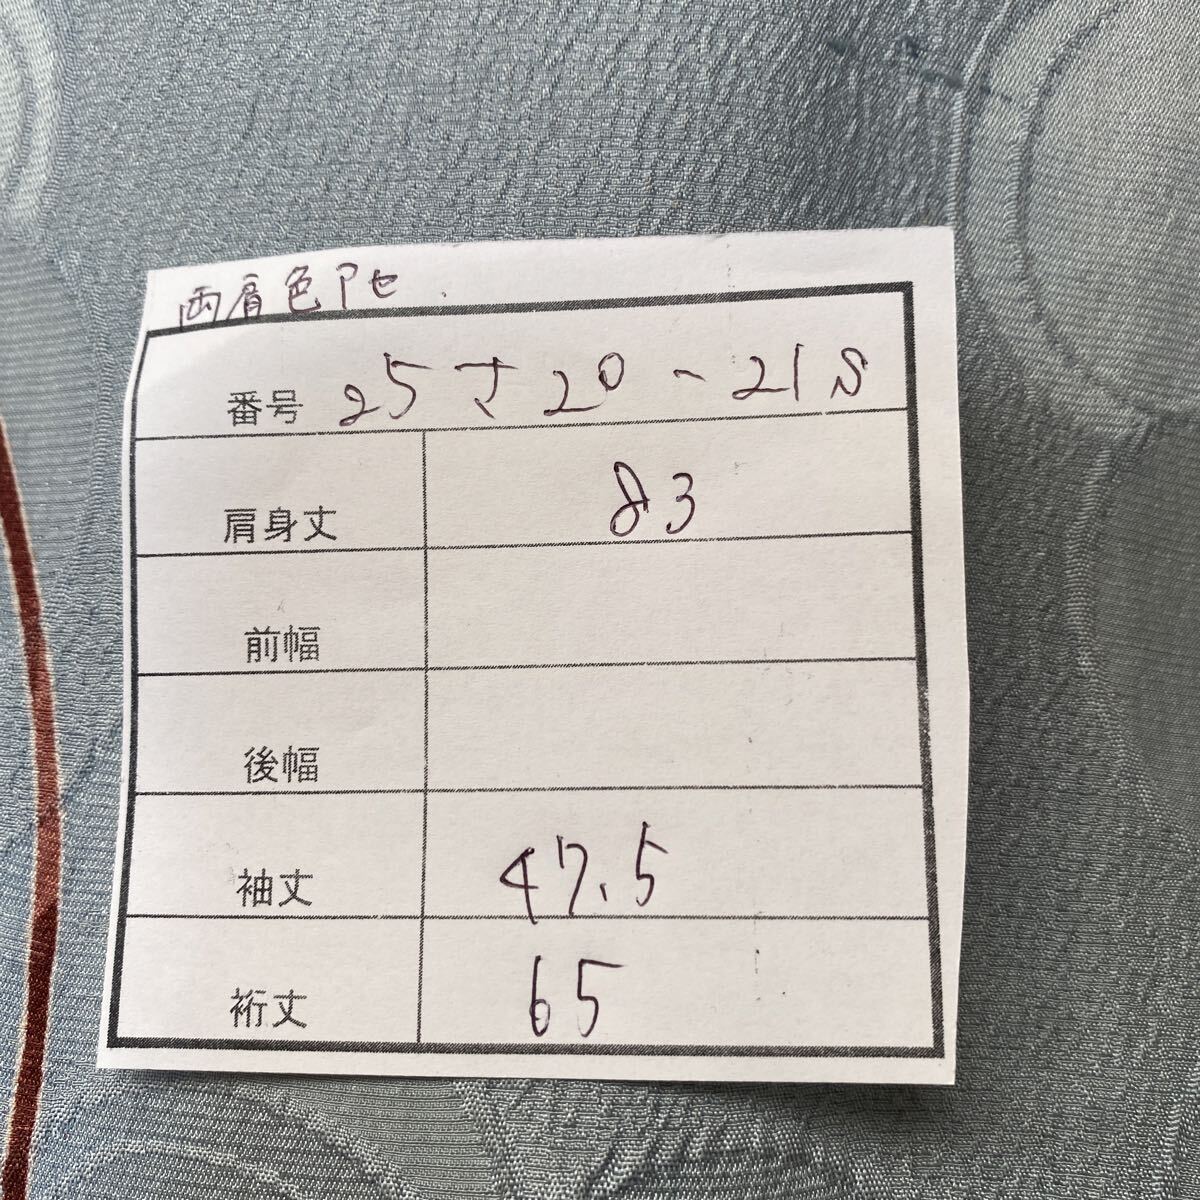 両肩色アセ
番号 25サ20-21S
肩身丈 83
前幅
後幅
袖丈 47.5
裄丈 65